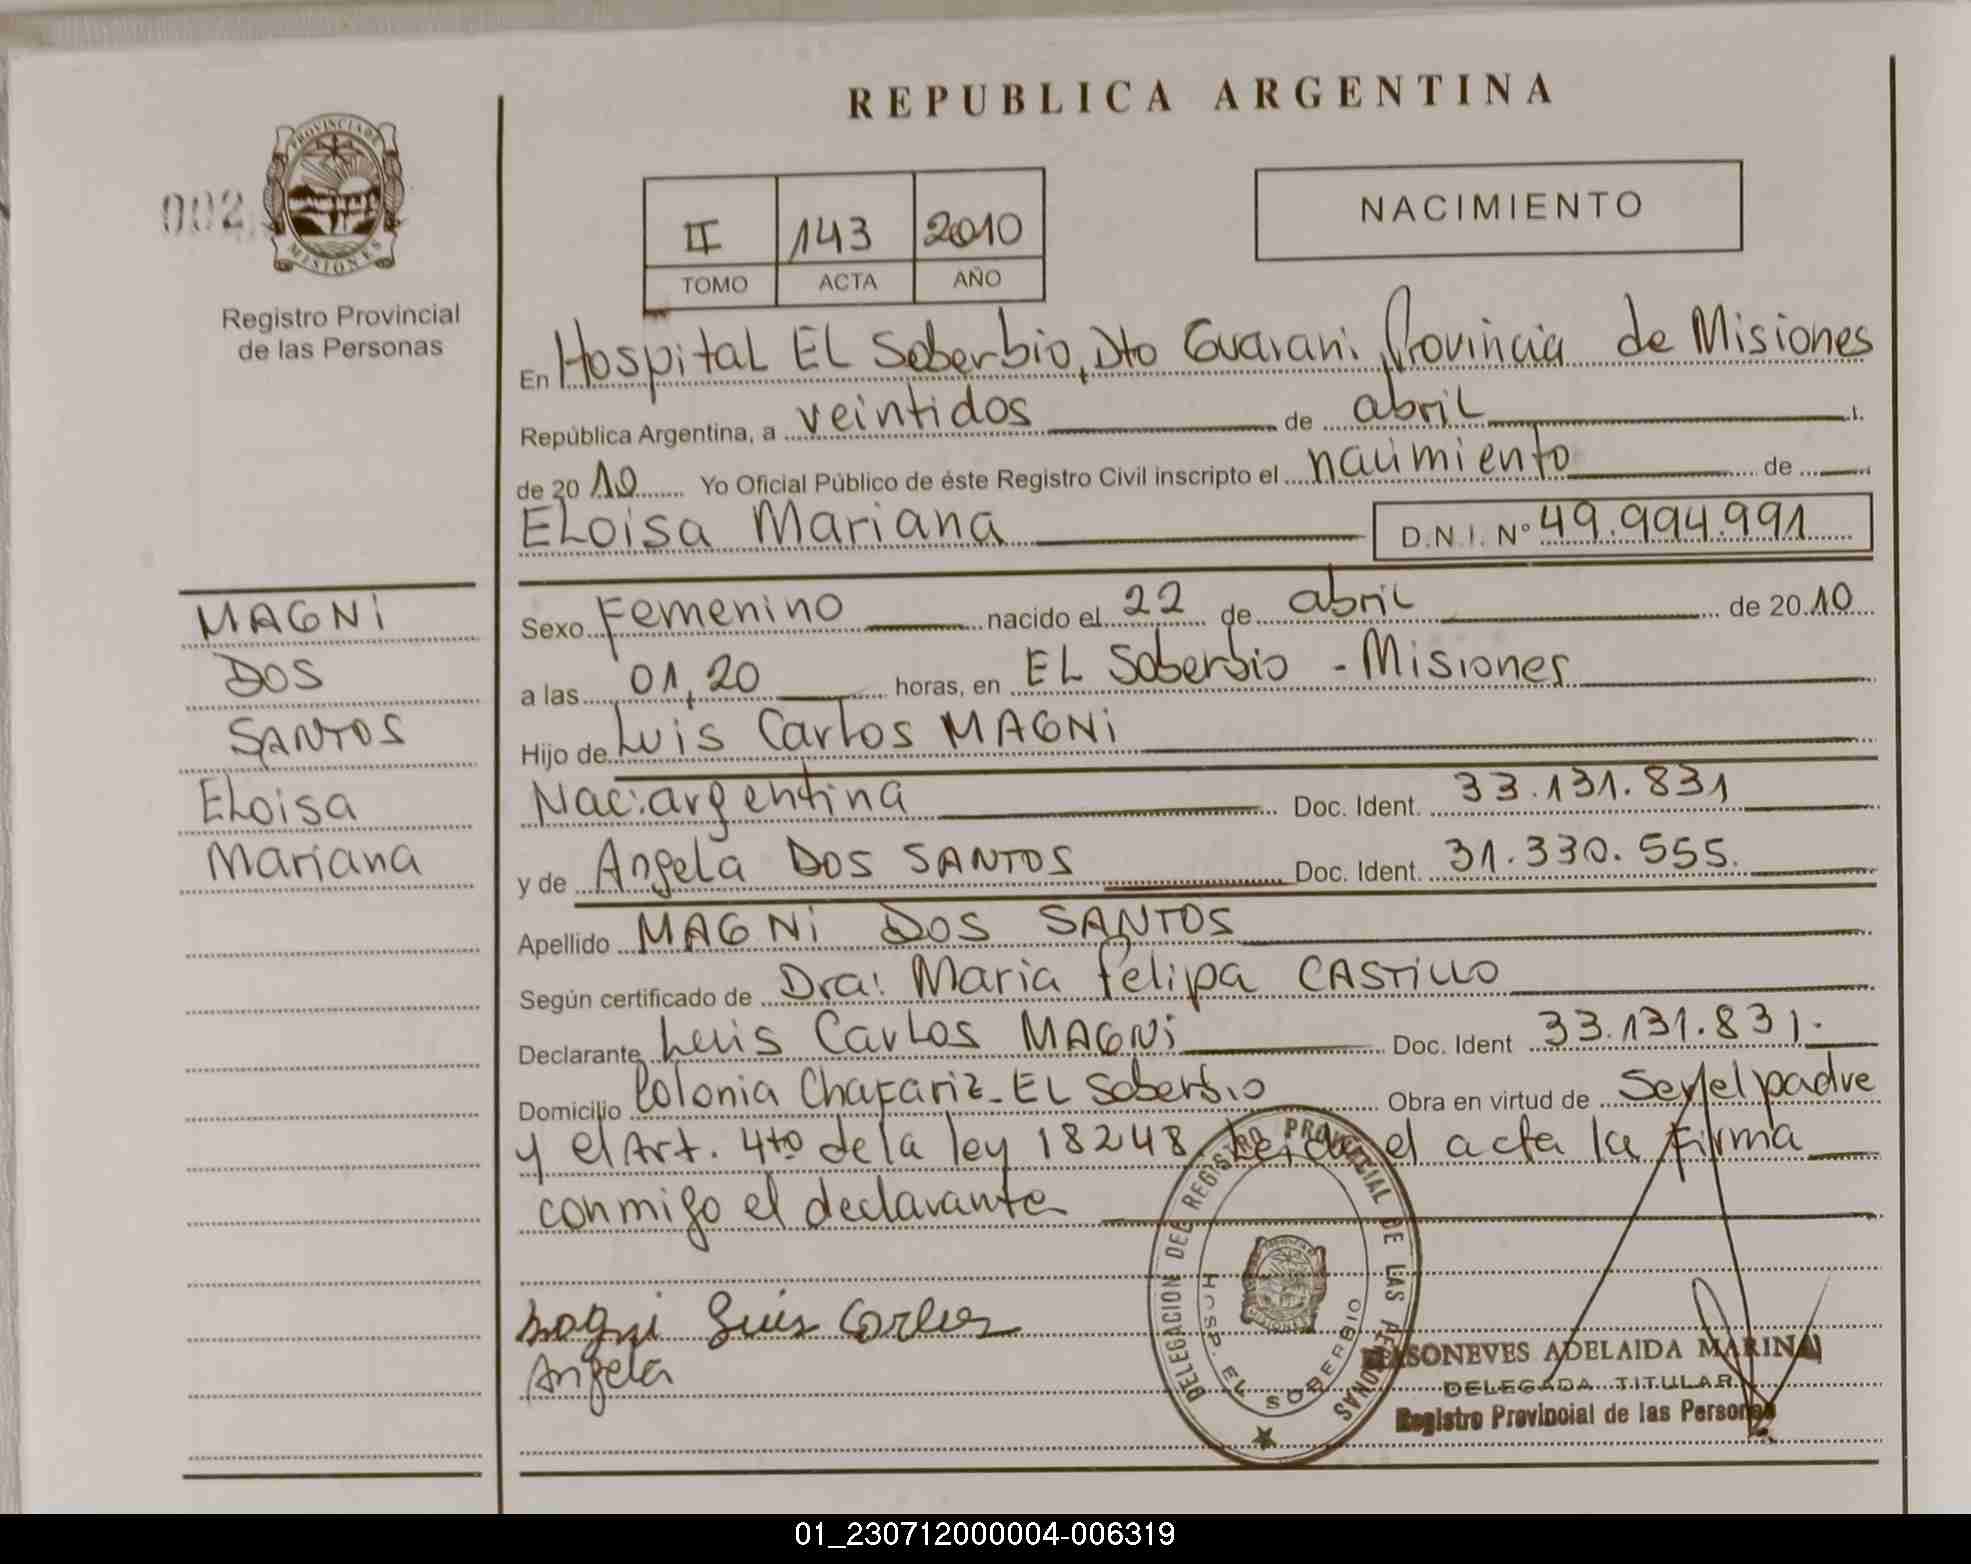 REPUBLICA ARGENTINA
002
PROVINCIA DE MISIONES
Registro Provincial
de las Personas
II 143 2010
TOMO ACTA AÑO
NACIMIENTO
En Hospital EL Soberbio, Dto Guarani, Provincia de Misiones
República Argentina, a veintidos de abril
de 20 10 Yo Oficial Público de éste Registro Civil inscripto el nacimiento de
ELoisa Mariana D.N.I. Nº 49.994.991
Sexo Femenino nacido el 22 de abril de 20 10
a las 01,20 horas, en EL Soberbio - Misiones
Hijo de Luis Carlos MAGNi
Nac: argentina Doc. Ident. 33.131.831
y de Angela DOS SANTOS Doc. Ident. 31.330.555.
Apellido MAGNi DOS SANTOS
Según certificado de Dra: Maria Felipa CASTiLLO
Declarante Luis Carlos MAGNi Doc. Ident 33.131.831.
Domicilio Colonia Chafariz - EL Soberbio Obra en virtud de Ser el padre
y el Art. 4to de la ley 18248 Leida el acta la firma
conmigo el declarante
MAGNi
DOS
SANTOS
ELoisa
Mariana
Magni Luis Carlos
Angela
DELEGACION DEL REGISTRO PROVINCIAL DE LAS PERSONAS
HOSP. EL SOBERBIO
ADELAIDA MARINA
DELEGADA TITULAR
Registro Provincial de las Personas
01_230712000004-006319